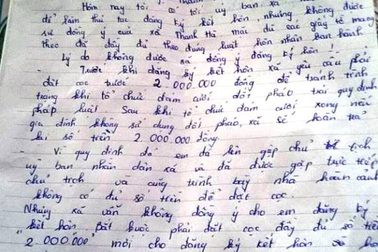 Hôm nay tôi có tới uỷ ban xã
để làm thủ tục đăng ký kết hôn nhưng không được
sự đồng ý của xã Thanh Hà mặc dù các giấy tờ mang
theo đã đầy đủ theo đúng luật hôn nhân ban hành
Lý do không được xã đồng ý đăng ký hôn:
- Trước khi đăng ký kết hôn xã yêu cầu phải
đặt cọc trước 2.000.000 đồng để tránh tình
trạng khi tổ chức đám cưới đốt pháo trái quy định
pháp luật. Sau khi tổ chức đám cưới xong nếu
gia đình không sử dụng đốt pháo, xã sẽ hoàn trả
lại số tiền 2.000.000 đồng
- Vì quy định đó em đã lên gặp chủ tịch
uỷ ban nhân dân xã và đã được gặp trực tiếp
chủ tịch và cũng trình bày nhà hoàn cảnh
không có đủ số tiền để đặt cọc.
Nhưng xã vẫn không đồng ý cho em đăng ký
kết hôn, bắt buộc phải đặt cọc đầy đủ số tiền
2.000.000 mới cho đăng ký kết hôn